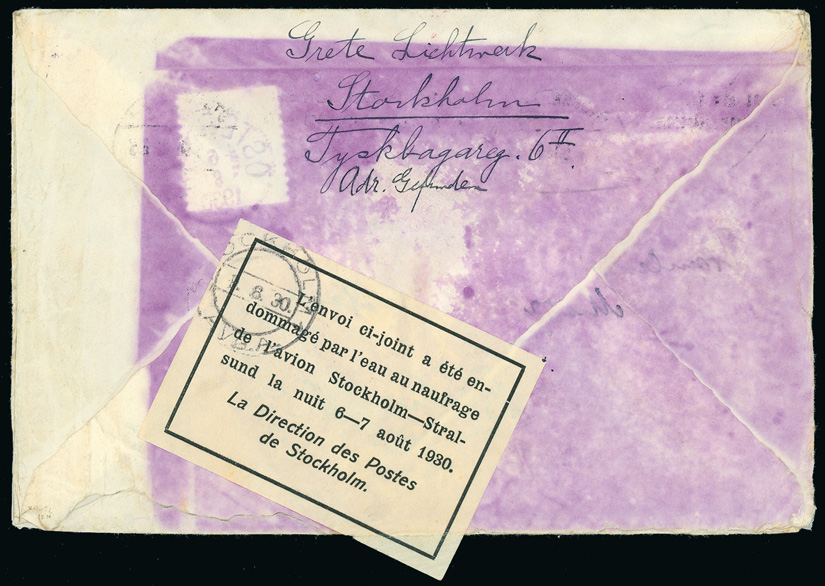 Grete Lichtwark
Stockholm
Tyskbagareg. 6 II
Adr.
L'envoi ci-joint a été en-
dommagé par l'eau au naufrage
de l'avion Stockholm—Stral-
sund la nuit 6—7 août 1930.
La Direction des Postes
de Stockholm.
STOCKHOLM
8.30.